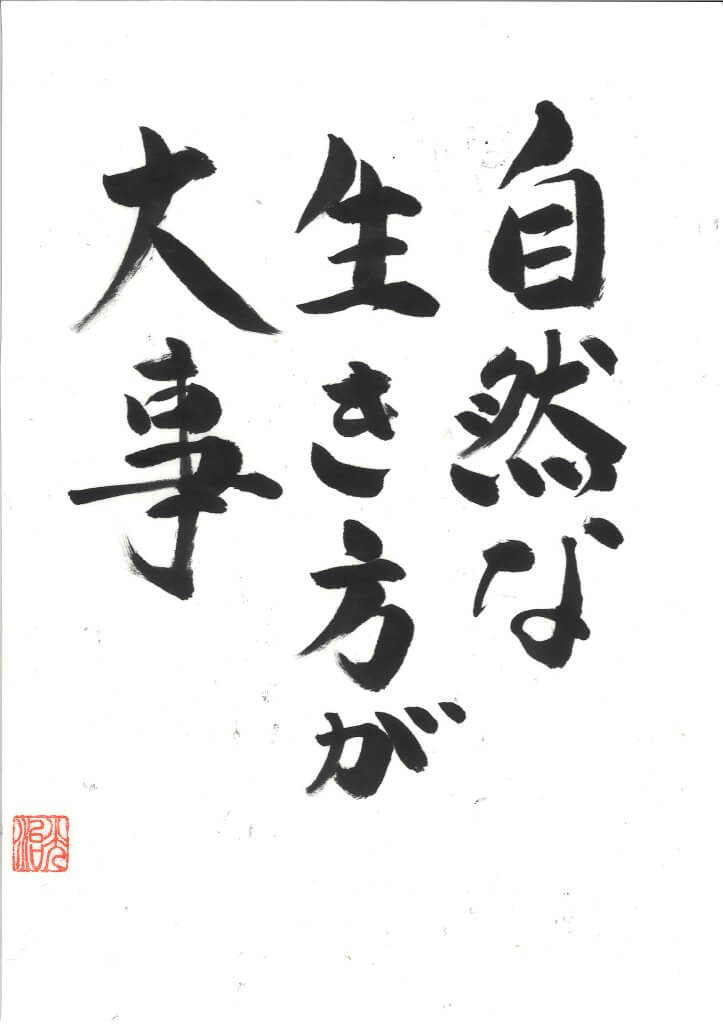 自然な
生き方が
大事